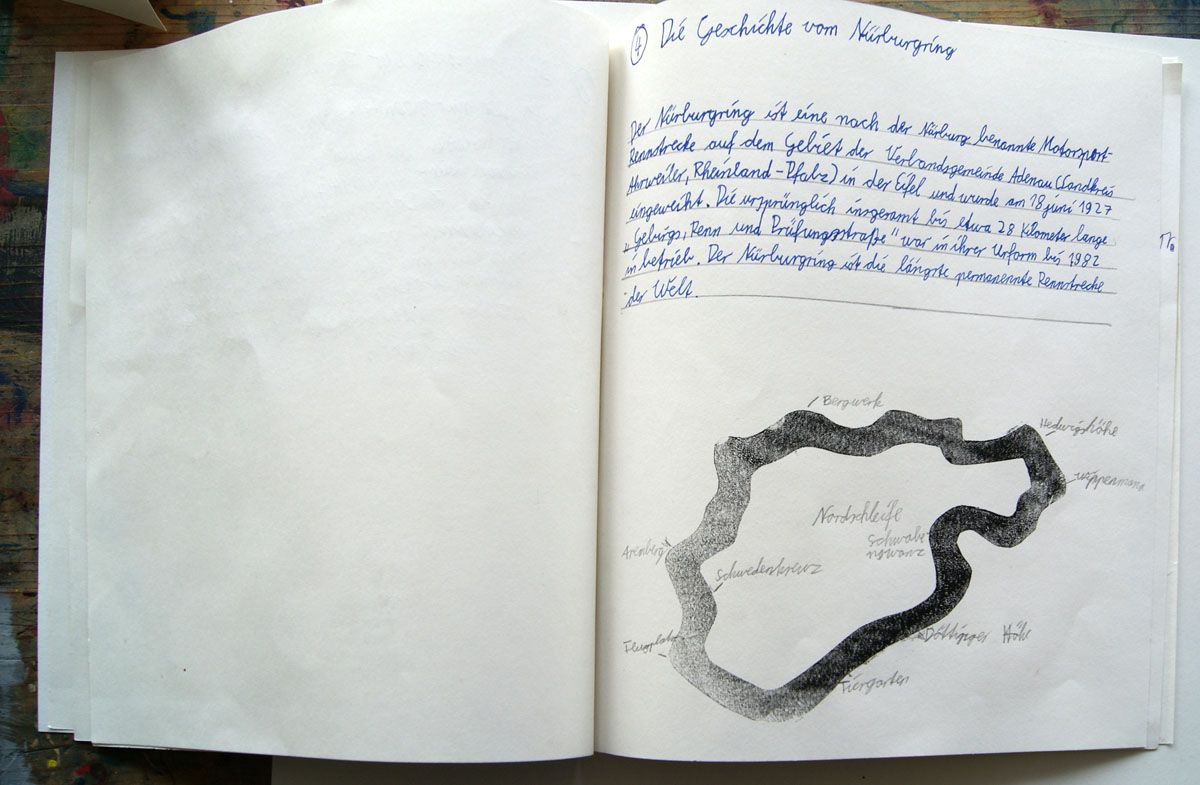 ④ Die Geschichte vom Nürburgring
Der Nürburgring ist eine nach der Nürburg benannte Motorsport-
Rennstrecke auf dem Gebiet der Verbandsgemeinde Adenau (Landkreis
Ahrweiler, Rheinland-Pfalz) in der Eifel und wurde am 18 juni 1927
eingeweiht. Die ursprünglich insgesamt bis etwa 28 Kilometer lange
„Gebirgs, Renn und Prüfungsstraße" war in ihrer Urform bis 1982
in betrieb. Der Nürburgring ist die längste permanennte Rennstrecke
der Welt.
Bergwerk
Hedwigshöhe
Wippermann
Nordschleife
Schwalb
nswanz
Arenberg
Schwedenkreuz
Flugplatz
Döttinger Höhe
Tiergarten